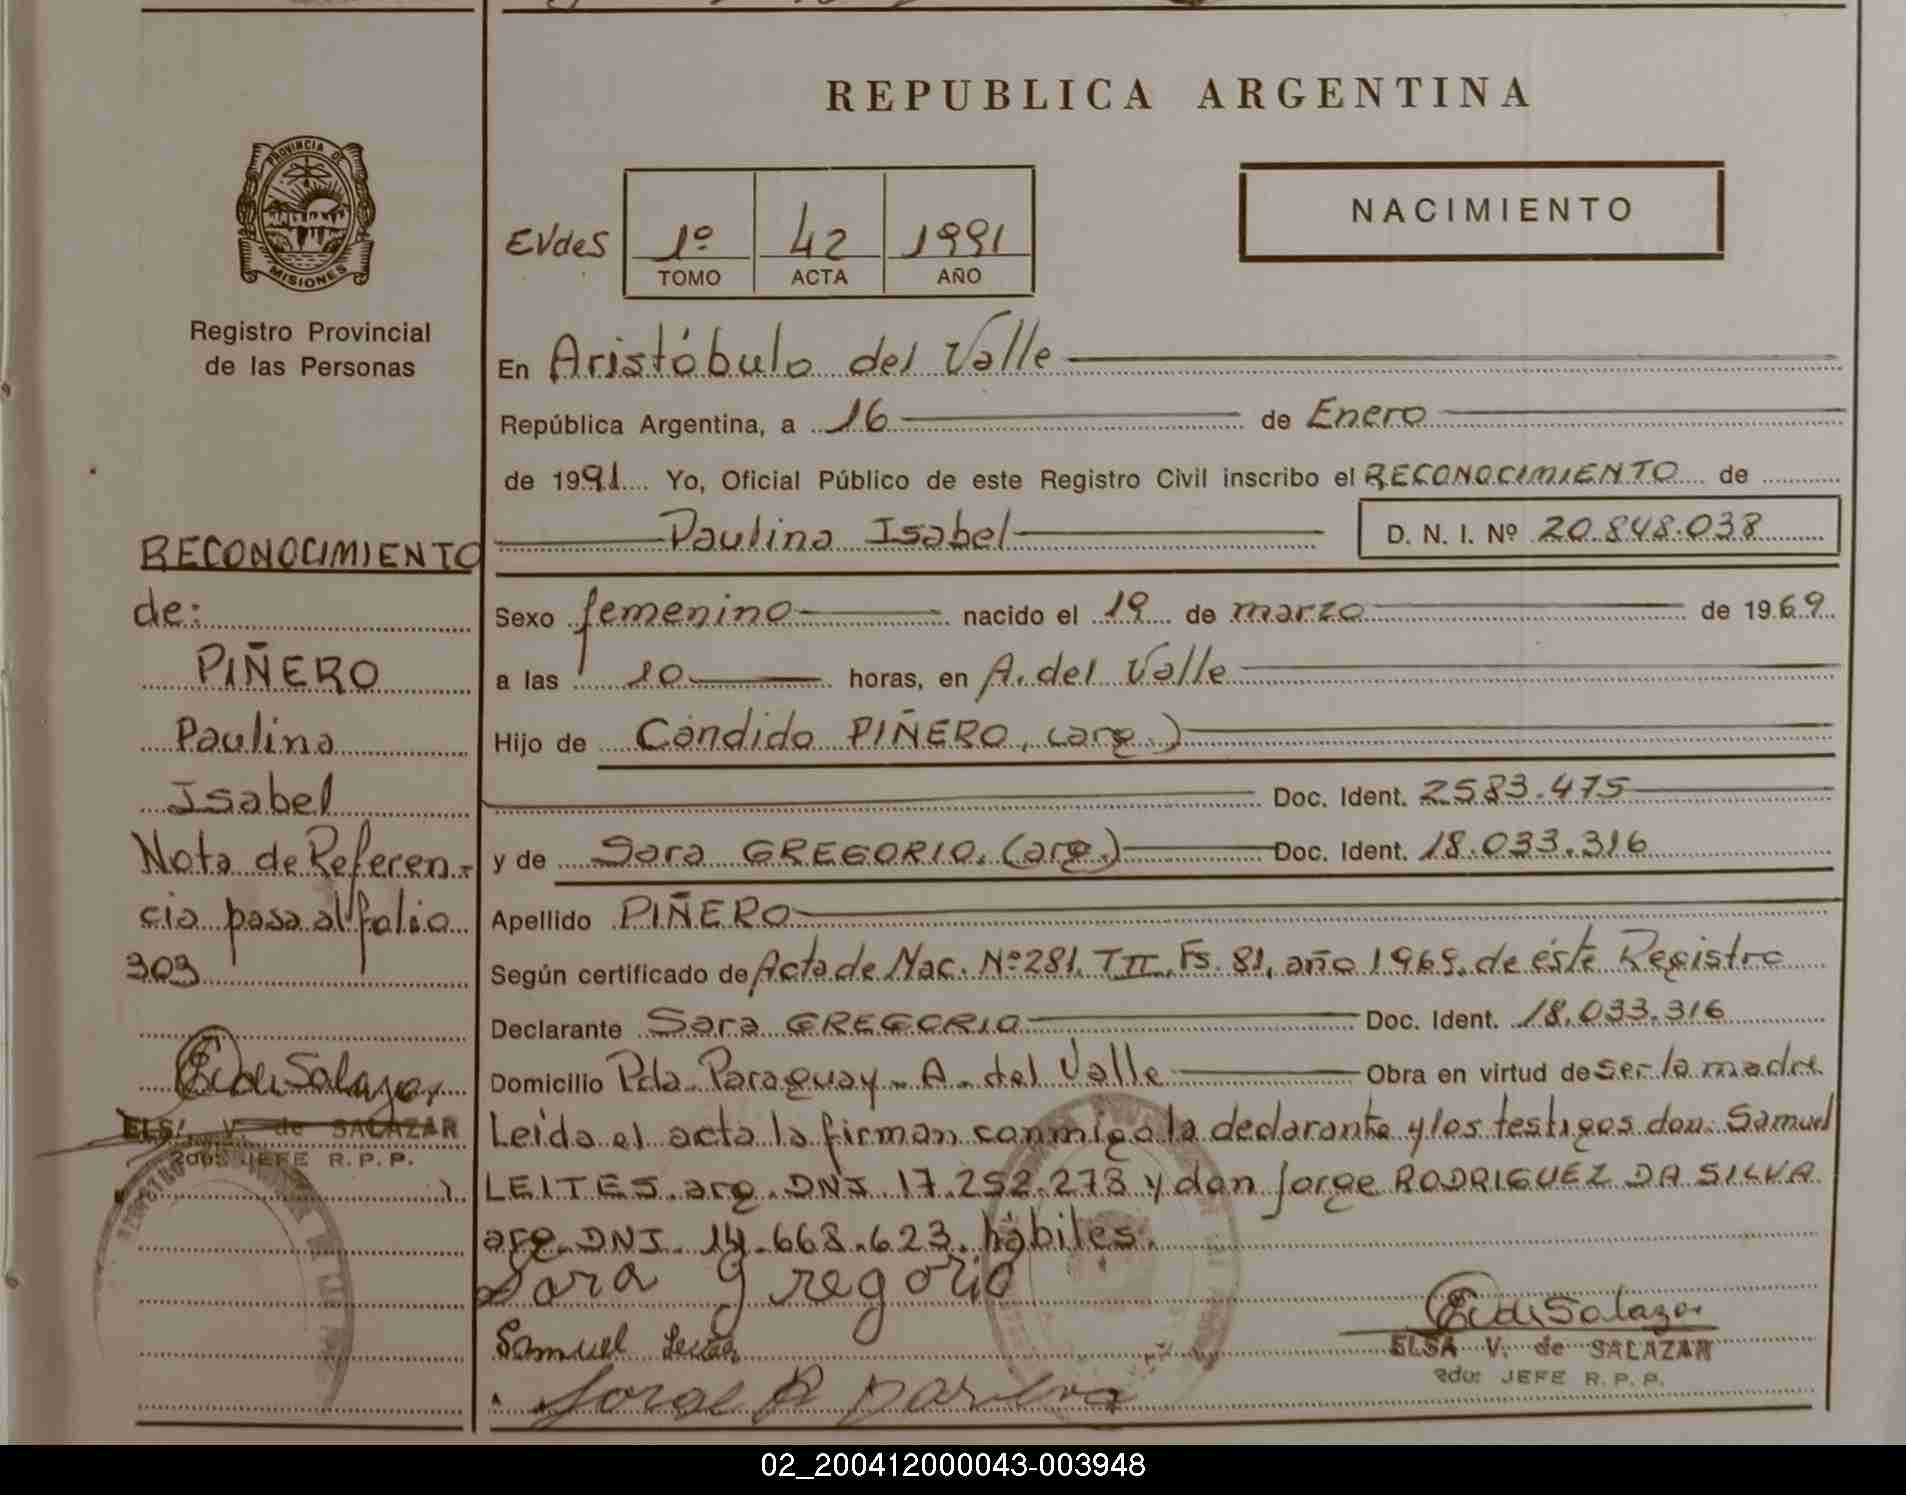 REPUBLICA ARGENTINA
PROVINCIA DE MISIONES
Registro Provincial
de las Personas
NACIMIENTO
EVdeS 1º 42 1991
TOMO ACTA AÑO
En Aristóbulo del Valle
República Argentina, a 16 de Enero
de 1991 Yo, Oficial Público de este Registro Civil inscribo el RECONOCIMIENTO de
Paulina Isabel D. N. I. Nº 20.848.038
Sexo femenino nacido el 19 de marzo de 1969
a las 10 horas, en A. del Valle
Hijo de Cándido PIÑERO, (arg.)
Doc. Ident. 2583.475
y de Sara GREGORIO, (arg.) Doc. Ident. 18.033.316
Apellido PIÑERO
Según certificado de Acta de Nac. Nº 281. T II. Fs. 81, año 1969. de éste Registro
Declarante Sara GREGORIO Doc. Ident. 18.033.316
Domicilio Pda. Paraguay - A. del Valle Obra en virtud de ser la madre
Leida el acta la firman conmigo la declarante y los testigos don Samuel
LEITES. arg. DNI. 17.252.278 y don Jorge RODRIGUEZ DA SILVA
arg. DNI. 14.668.623. hábiles.
Sara Gregorio
Samuel
Jorge R
E V de Salazar
ELSA V. de SALAZAR
2do: JEFE R. P. P.
RECONOCIMIENTO
de:
PIÑERO
Paulina
Isabel
Nota de Referen-
cia pasa al folio
303
E V de Salazar
ELSA V. de SALAZAR
2do: JEFE R. P. P.
02_200412000043-003948